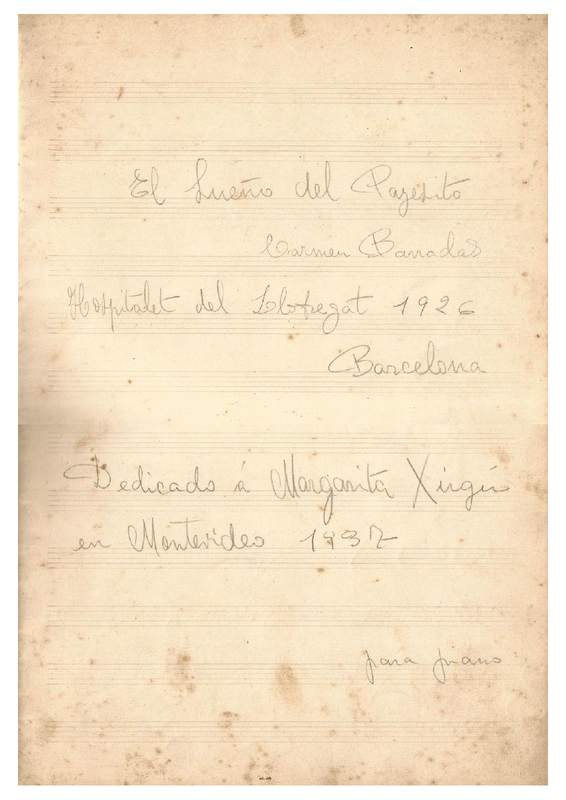 El Sueño del Payesito
Carmen Barradas
Hospitalet del Llobregat 1926
Barcelona
Dedicado á Margarita Xirgú
en Montevideo 1937
para piano